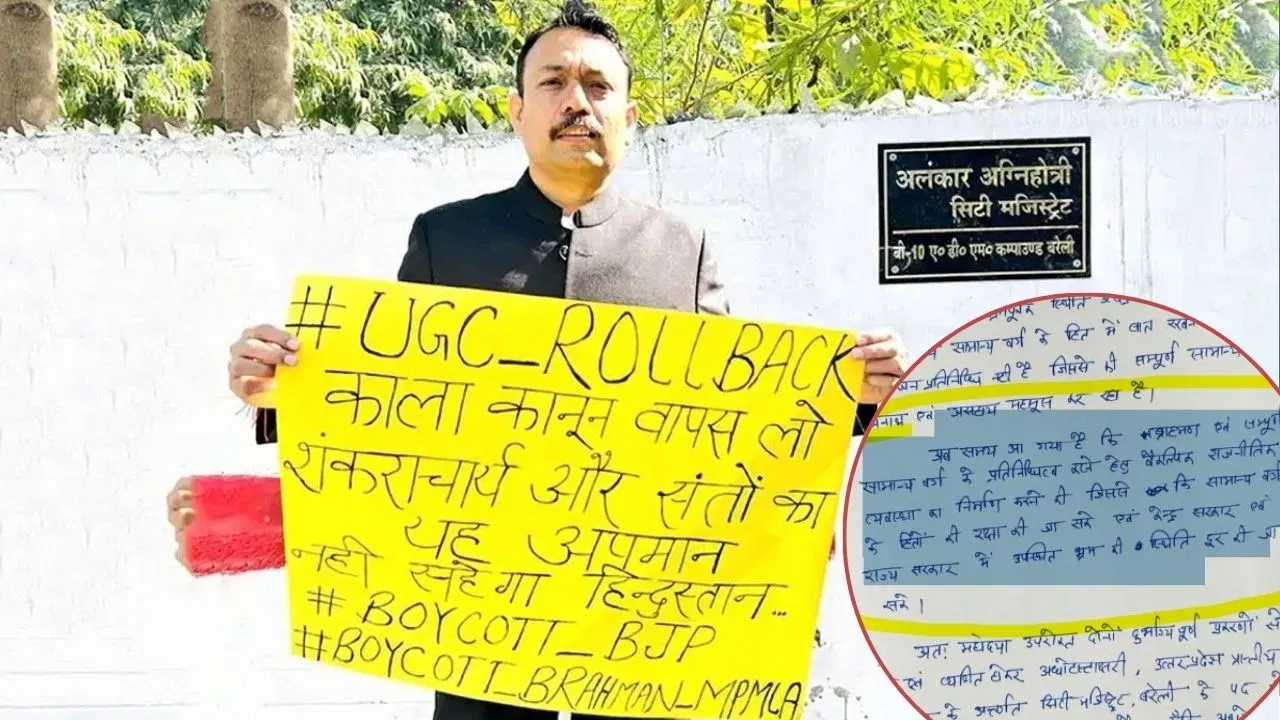 अलंकार अग्निहोत्री
सिटी मजिस्ट्रेट
बी-10 ए० डी० एम० कम्पाउण्ड बरेली
#UGC_ROLLBACK
काला कानून वापस लो
शंकराचार्य और संतों का
यह अपमान
नहीं सहेगा हिन्दुस्तान...
#BOYCOTT_BJP
#BOYCOTT_BRAHMAN_MPMLA
सामान्य वर्ग के हित में बात रखने
जनप्रतिनिधि नहीं है जिससे की सम्पूर्ण सामान्य
एवं असहाय महसूस कर रहा है।
अब समय आ गया है कि ब्राह्मण एवं सम्पूर्ण
सामान्य वर्ग के प्रतिनिधित्व करने हेतु वैकल्पिक राजनीतिक
व्यवस्था का निर्माण करने की जिससे कि सामान्य वर्ग
के हितों की रक्षा की जा सके एवं केन्द्र सरकार एवं
राज्य सरकार में उपस्थित भ्रम की स्थिति दूर की जा
सके।
अतः महोदया उपरोक्त दोनों दुर्भाग्यपूर्ण प्रकरणों से
एवं व्यथित होकर अधोहस्ताक्षरी, उत्तर प्रदेश प्रान्तीय
के अन्तर्गत सिटी मजिस्ट्रेट, बरेली के पद